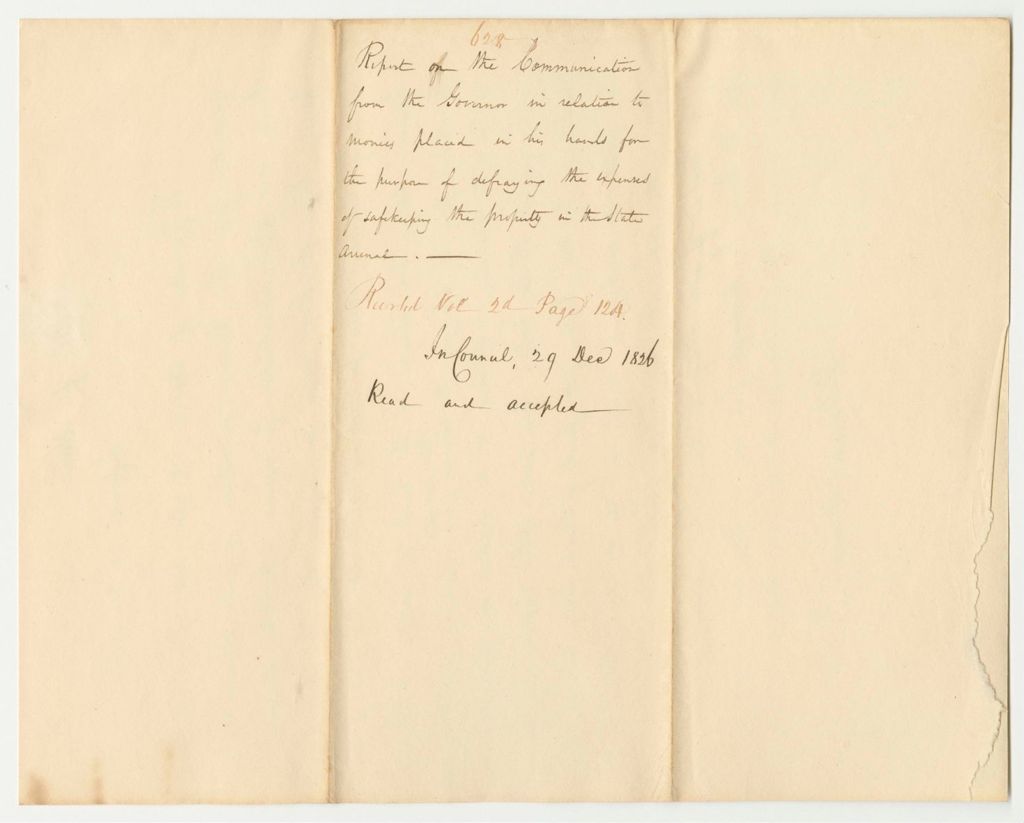 628
Report on the Communication
from the Governor in relation to
monies placed in his hands for
the purpose of defraying the expenses
of safekeeping the property in the State
Arsenal. —
Recorded Vol 2d Page 124.
In Council, 29 Dec 1826
Read and accepted